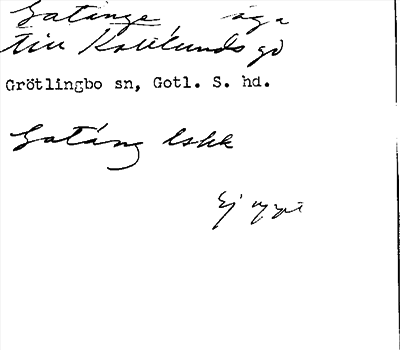 Gatänge äga
till Kattlunds gd
Grötlingbo sn, Gotl. S. hd.
Gatäng lskk
Ej uppt